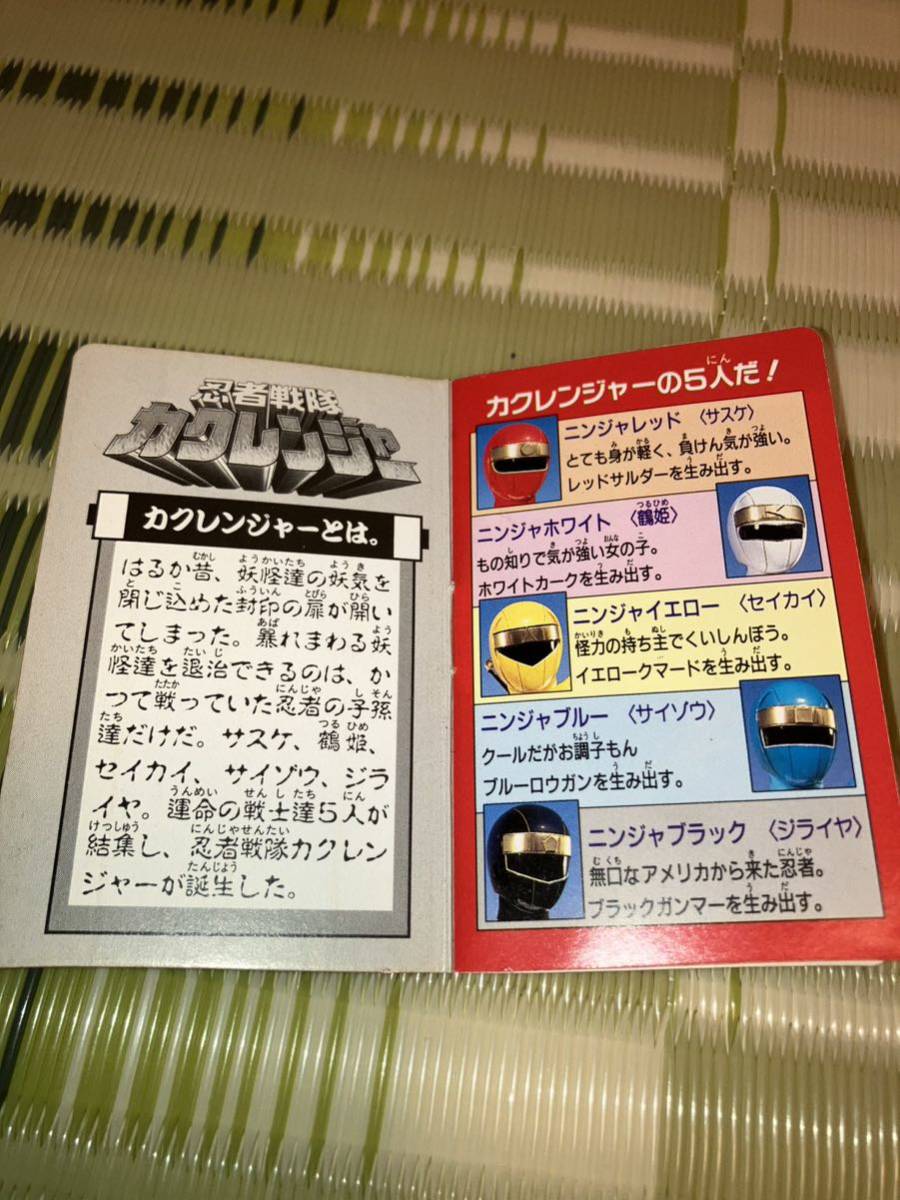 忍者戦隊
カクレンジャー
カクレンジャーとは。
はるか昔、妖怪達の妖気を
閉じ込めた封印の扉が開い
てしまった。暴れまわる妖
怪達を退治できるのは、か
つて戦っていた忍者の子孫
達だけだ。サスケ、鶴姫、
セイカイ、サイゾウ、ジラ
イヤ。運命の戦士達5人が
結集し、忍者戦隊カクレン
ジャーが誕生した。
カクレンジャーの5人だ!
ニンジャレッド 〈サスケ〉
とても身が軽く、負けん気が強い。
レッドサルダーを生み出す。
ニンジャホワイト 〈鶴姫〉
もの知りで気が強い女の子。
ホワイトカークを生み出す。
ニンジャイエロー 〈セイカイ〉
怪力の持ち主でくいしんぼう。
イエロークマードを生み出す。
ニンジャブルー 〈サイゾウ〉
クールだがお調子もん
ブルーロウガンを生み出す。
ニンジャブラック 〈ジライヤ〉
無口なアメリカから来た忍者。
ブラックガンマーを生み出す。